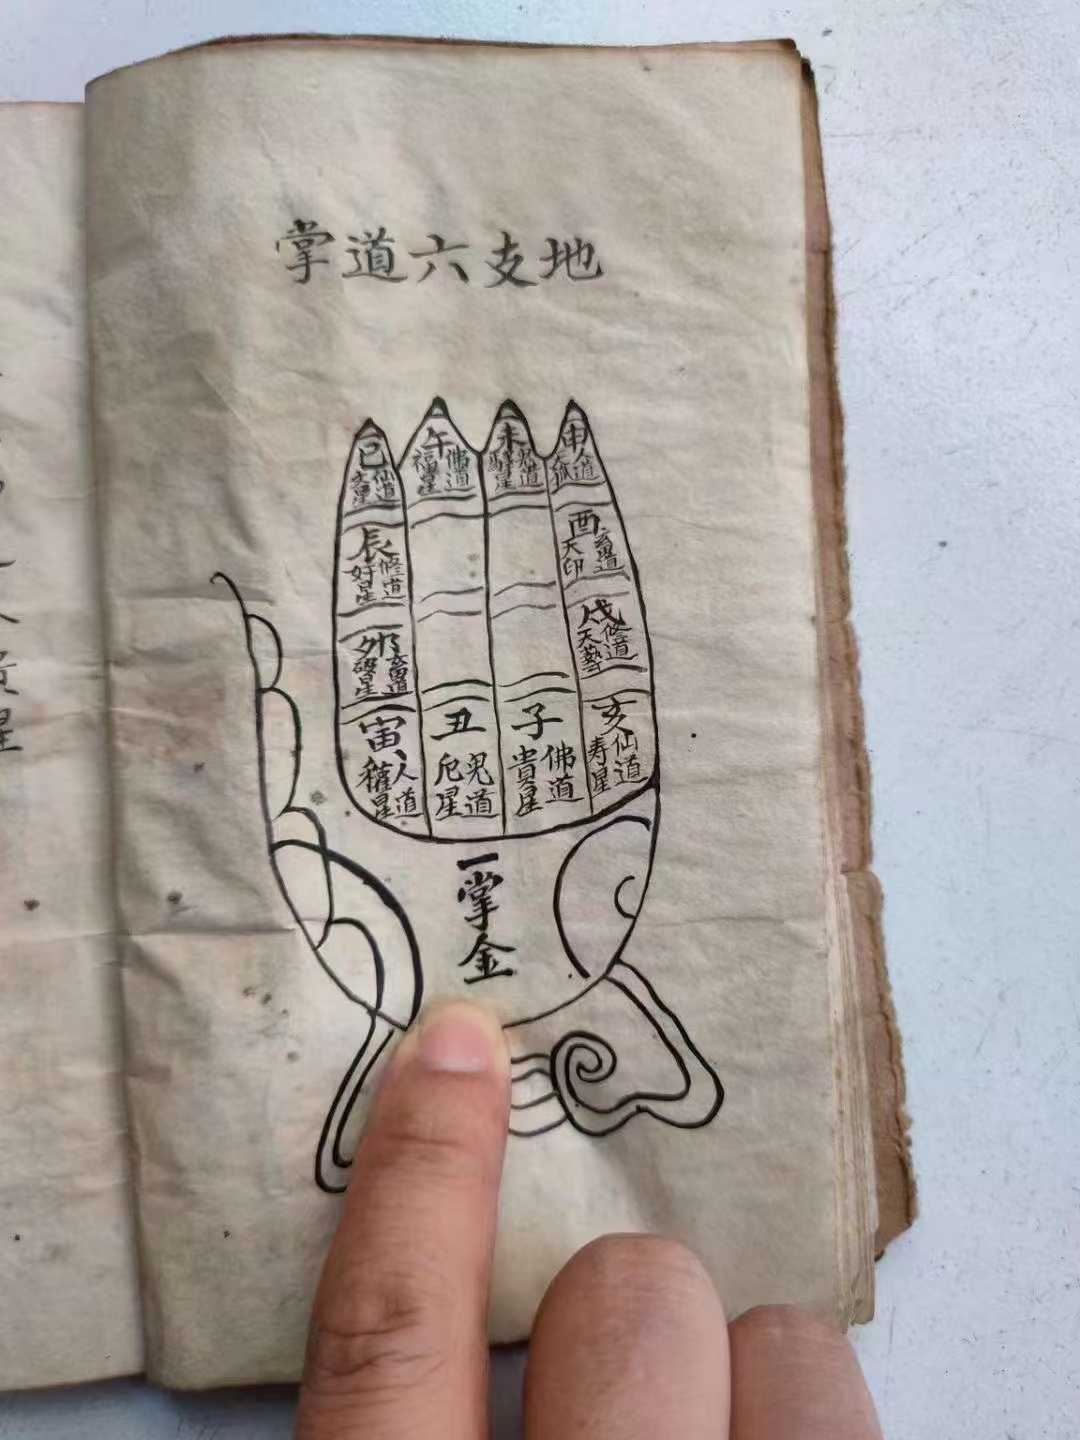 地支六道掌
巳
仙道
文星
午
佛道
福星
未
鬼道
驛星
申
人道
天孤
辰
修道
奸星
酉
畜道
天印
卯
畜道
破星
戌
修道
天藝
寅
人道
權星
丑
鬼道
厄星
子
佛道
貴星
亥
仙道
寿星
一掌金